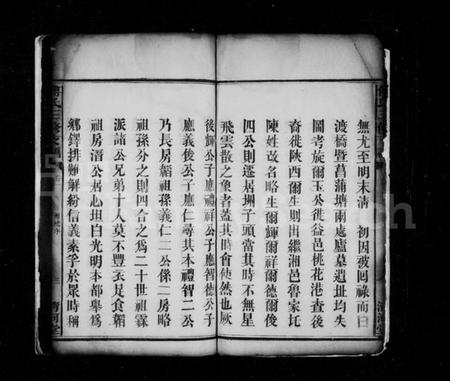 無尤至明末清　初因被回祿而曰
渡橋暨菖蒲塘兩處廬墓遺址均失
圖考旋爾玉公徙益邑桃花港查後
奇徙陝西爾生則出繼湘邑魯家圫
陳姓故名略生爾輝爾祥爾德爾俊
四公則遷居壻子頭當其時不無星
飛雲散之象者蓋其時會使然也厥
後輝公子應禮祥公子應智德公子
應義俊公子應仁尋其本禮智二公
乃長房韜祖孫義仁二公係二房略
祖孫分之則四合之爲二十世祖霖
派諸公兄弟十人莫不豐衣足食韜
祖房溍公居心坦白光明本都舉爲
鄉鐸排難解紛信義素孚於眾時稱